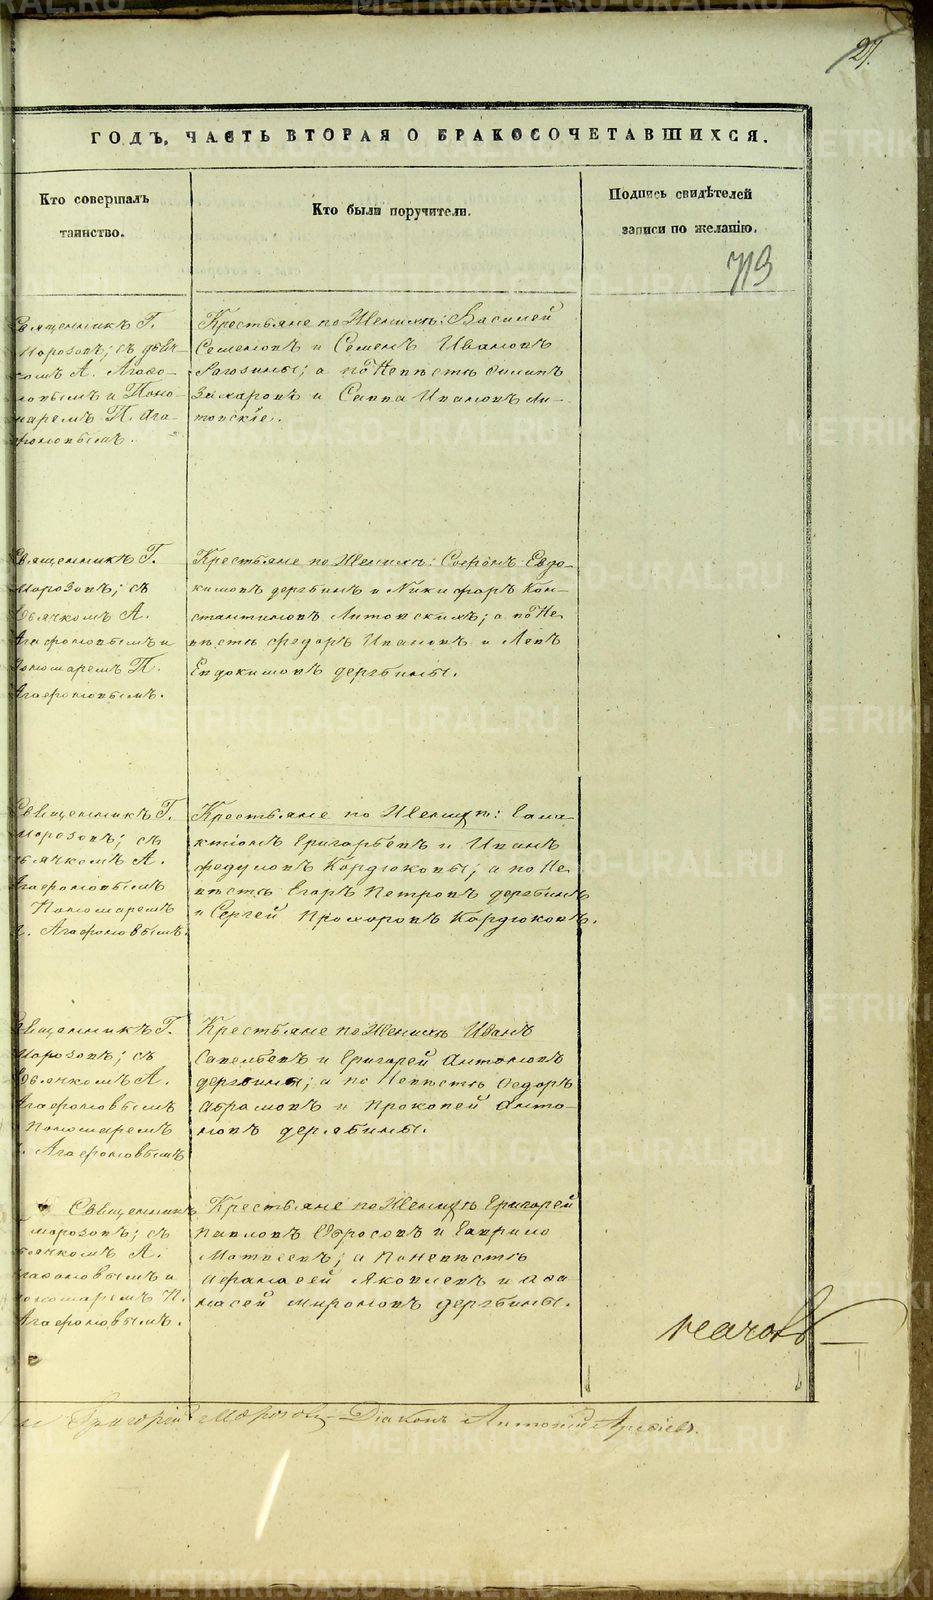 27.
ГОДЪ, ЧАСТЬ ВТОРАЯ О БРАКОСОЧЕТАВШИХСЯ.
Кто совершалъ
таинство.
Кто были поручители.
Подпись свидѣтелей
записи по желанію.
713
Священникъ Г.
Морозовъ; съ дьяч-
комъ А. Агафо-
новымъ и Поно-
маремъ П. Ага-
фоновымъ.
Крестьяне по Женихѣ: Василей
Семеновъ и Семенъ Ивановъ
Рагозины; а по Невѣстѣ Филипъ
Захаровъ и Савва Ивановъ Ли-
товскіе.
Священникъ Г.
Морозовъ; съ
Дьячкомъ А.
Агафоновымъ и
Пономаремъ П.
Агафоновымъ.
Крестьяне по Женихѣ: Софонъ Евдо-
кимовъ дерябинъ и Никифоръ Кон-
стантиновъ Литовскихъ; а по Не-
вѣстѣ Федоръ Ивановъ и Левъ
Евдокимовъ дерябины.
Священникъ Г.
Морозовъ; съ
дьячкомъ А.
Агафоновымъ
Пономаремъ
П. Агафоновымъ.
Крестьяне по Женихѣ: Гала-
ктіонъ Григорьевъ и Иванъ
Федуловъ Кордюковы; а по Не-
вѣстѣ Егоръ Петровъ дерябинъ
и Сергей Прохоровъ Кордюковъ.
Священникъ Г.
Морозовъ; съ
Дьячкомъ А.
Агафоновымъ
Пономаремъ
П. Агафоновымъ
Крестьяне по Женихѣ Иванъ
Савельевъ и Григорей Антоновъ
дерябины; а по Невѣстѣ Федоръ
Абрамовъ и Прокопей Анто-
новъ дерябины.
Священникъ
Морозовъ; съ
дьячкомъ А.
Агафоновымъ и
пономаремъ П.
Агафоновымъ.
Крестьяне по Женихѣ Григорей
Павловъ Обросовъ и Гаврило
Матвеевъ; а по невѣстѣ
Афанасей Яковлевъ и Афа-
насей Мироновъ дерябины.
Григорій Морозовъ Діаконъ Антоній
METRIKI.GASO-URAL.RU